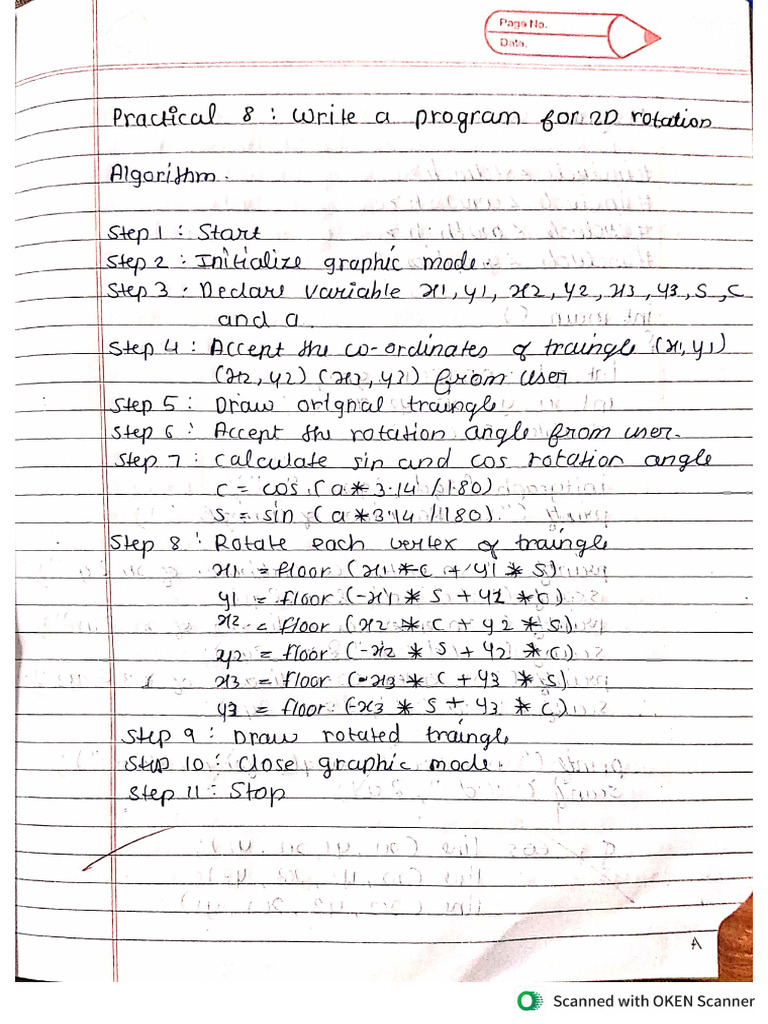 Page No.
Date.
Practical 8 : Write a program for 2D rotation
Algorithm.
Step 1 : Start
Step 2 : Initialize graphic mode.
Step 3 : Declare variable x1, y1, x2, y2, x3, y3, s, c
and a.
Step 4 : Accept the co-ordinates of traingle (x1, y1)
(x2, y2) (x3, y3) from user
Step 5 : Draw orignal traingle
Step 6 : Accept the rotation angle from user.
Step 7 : Calculate sin and cos rotation angle
c = cos (a * 3.14 / 180)
s = sin (a * 3.14 / 180).
Step 8 : Rotate each vertex of traingle
x1 = floor (x1 * c + y1 * s)
y1 = floor (-x1 * s + y2 * c)
x2 = floor (x2 * c + y2 * s)
y2 = floor (-x2 * s + y2 * c)
x3 = floor (-x3 * c + y3 * s)
y3 = floor (-x3 * s + y3 * c)
Step 9 : Draw rotated traingle
Step 10 : Close graphic mode.
Step 11 : Stop
A
Scanned with OKEN Scanner